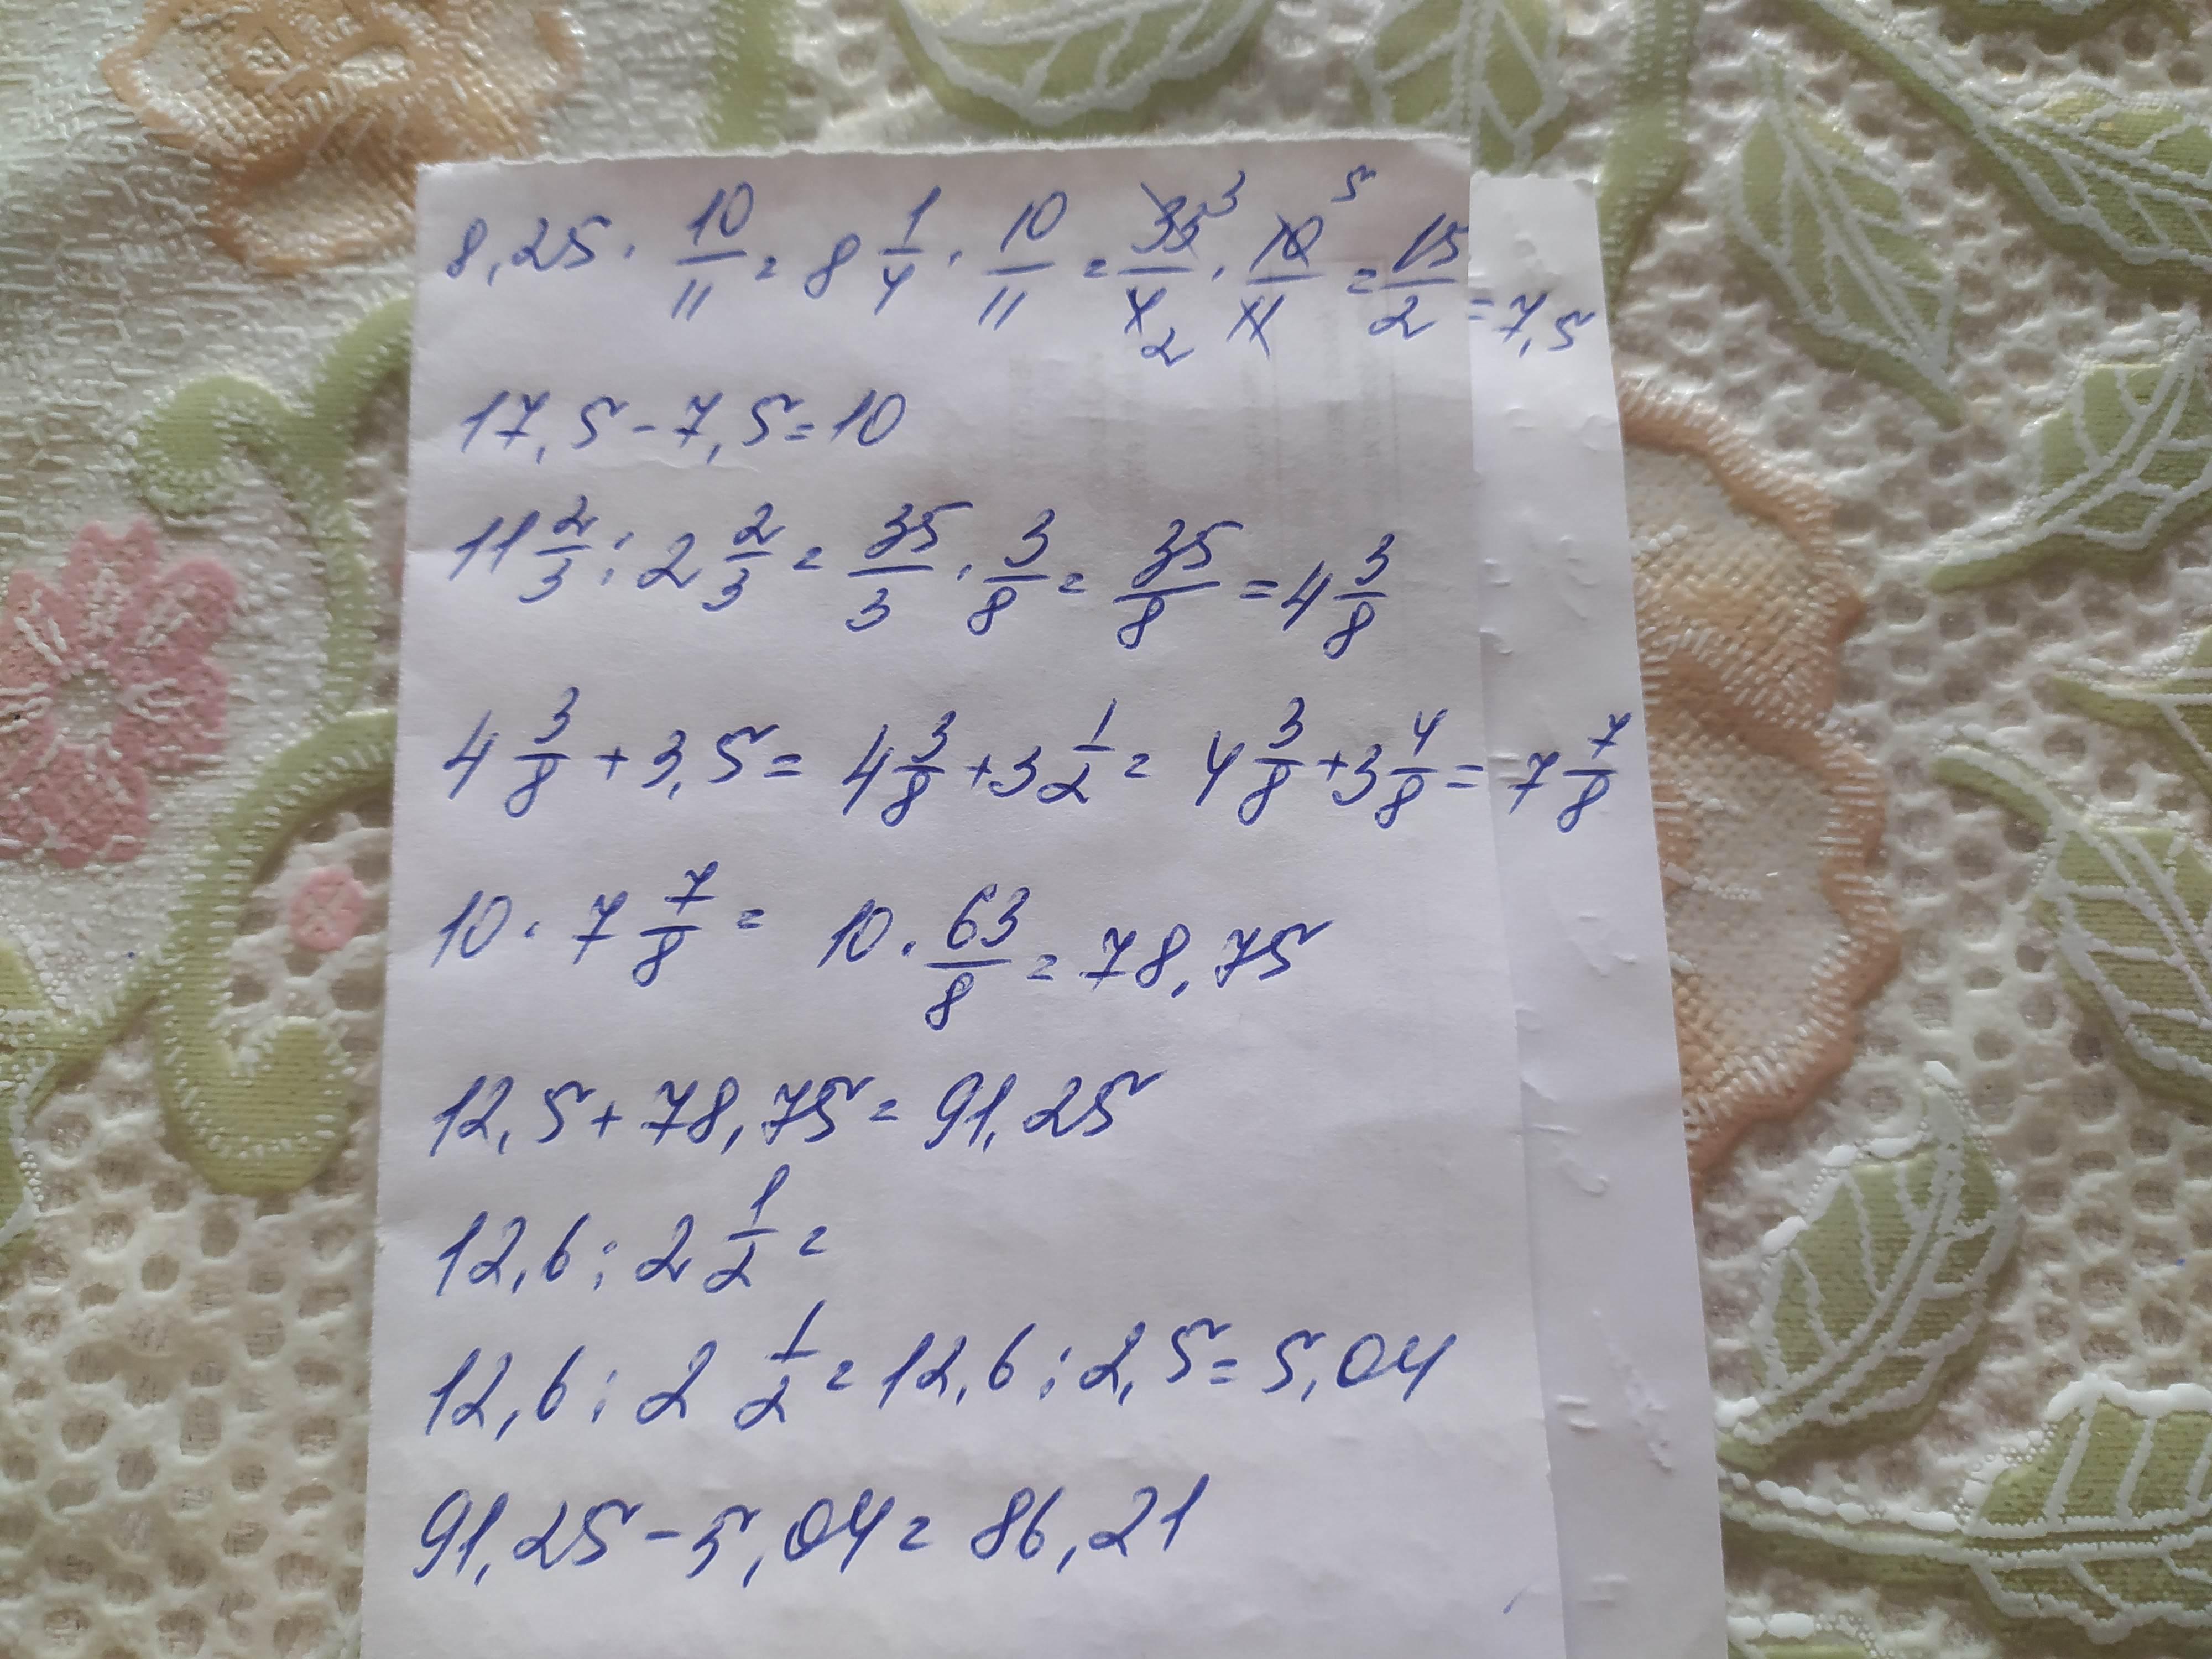 8,25 · 10/11 = 8 1/4 · 10/11 = 33 3/4 2 · 10 5/11 = 15/2 = 7,5
17,5 - 7,5 = 10
11 2/3 : 2 2/3 = 35/3 · 3/8 = 35/8 = 4 3/8
4 3/8 + 3,5 = 4 3/8 + 3 1/2 = 4 3/8 + 3 4/8 = 7 7/8
10 · 7 7/8 = 10 · 63/8 = 78,75
12,5 + 78,75 = 91,25
12,6 : 2 1/2 =
12,6 : 2 1/2 = 12,6 : 2,5 = 5,04
91,25 - 5,04 = 86,21